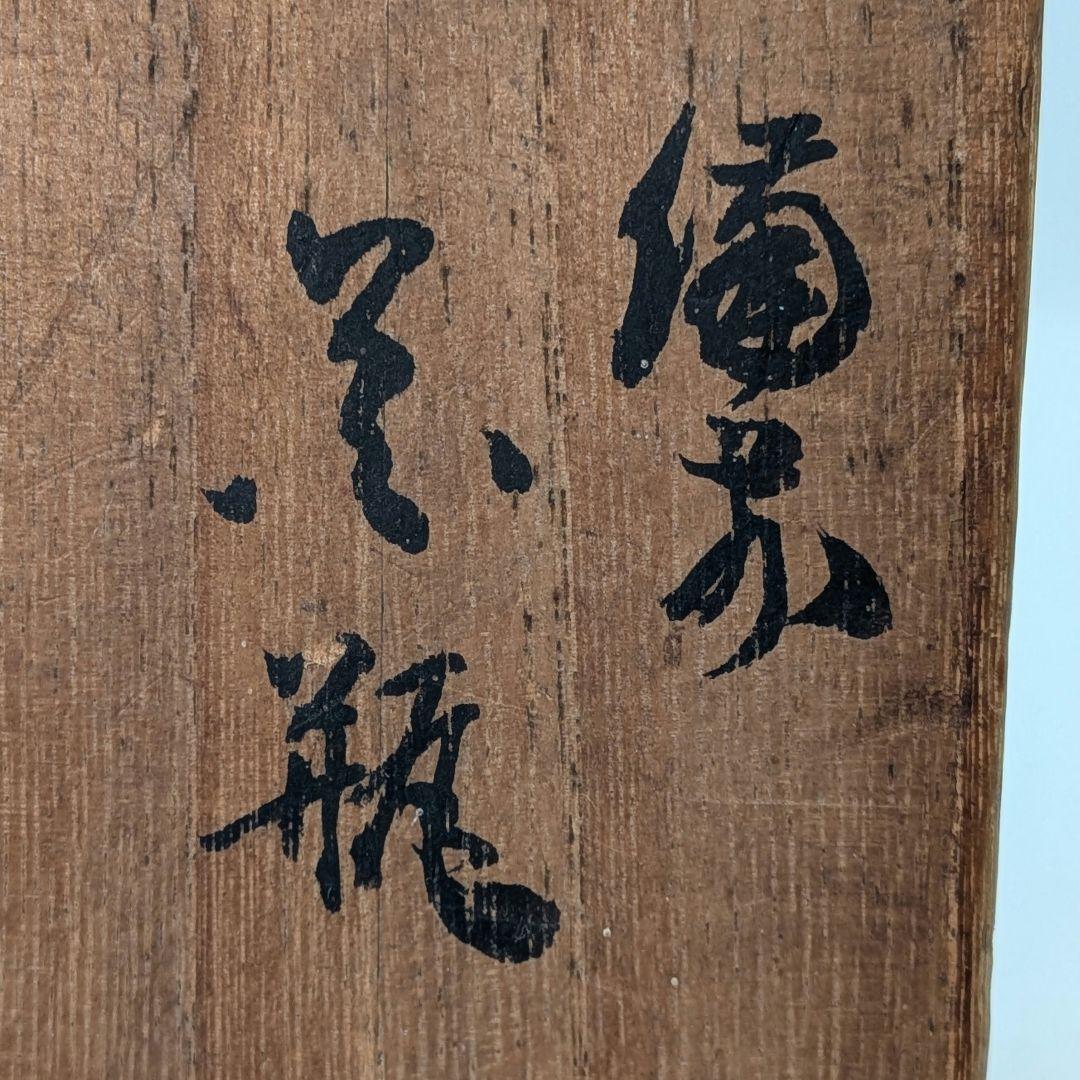 備前
花瓶